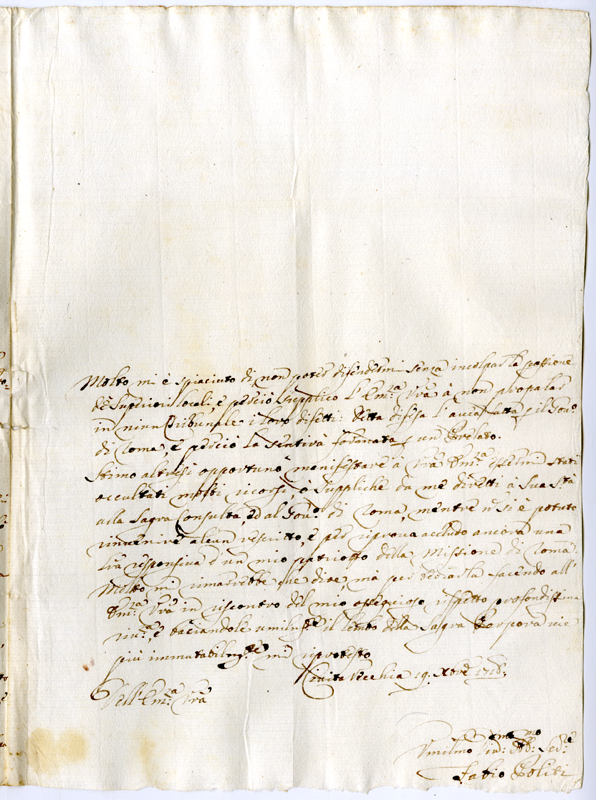 Molto mi è spiaciuto di non poter difendermi senza incolpar la passione
de Superiori locali, e perciò supplico l'Em:za Vrā à non propalar
in niun Tribunale i loro difetti. Detta difesa l'accertata il Gov:o
di Roma, e perciò la sentirà un Prelato.
Stimo altresì opportuno manifestare à Vrā Em:za essermi stati
occultati molti ricorsi, ò suppliche da me diretti à Sua S:tà
alla Sagra Consulta, ed al Gov:o di Roma, mentre n' si è potuto
rinvenire alcun rescritto, e per riprova accludo ancora una
responsiva d'un mio patriotto della Missione di Roma.
Molto mi rimarrebbe che dire, mà per tediarla facendo all'
Em:za Vrā in riscontro del mio ossequioso rispetto profondissima
e baciandole umilm:te il lembo della Sagra Porpora vie
più immutabilm:te mi riprotesto
Civita Vecchia 19. Xbre 1718.
Dell'Em:za Vrā
Umilmo Div: Ob: Ser:e
Fabio Politi